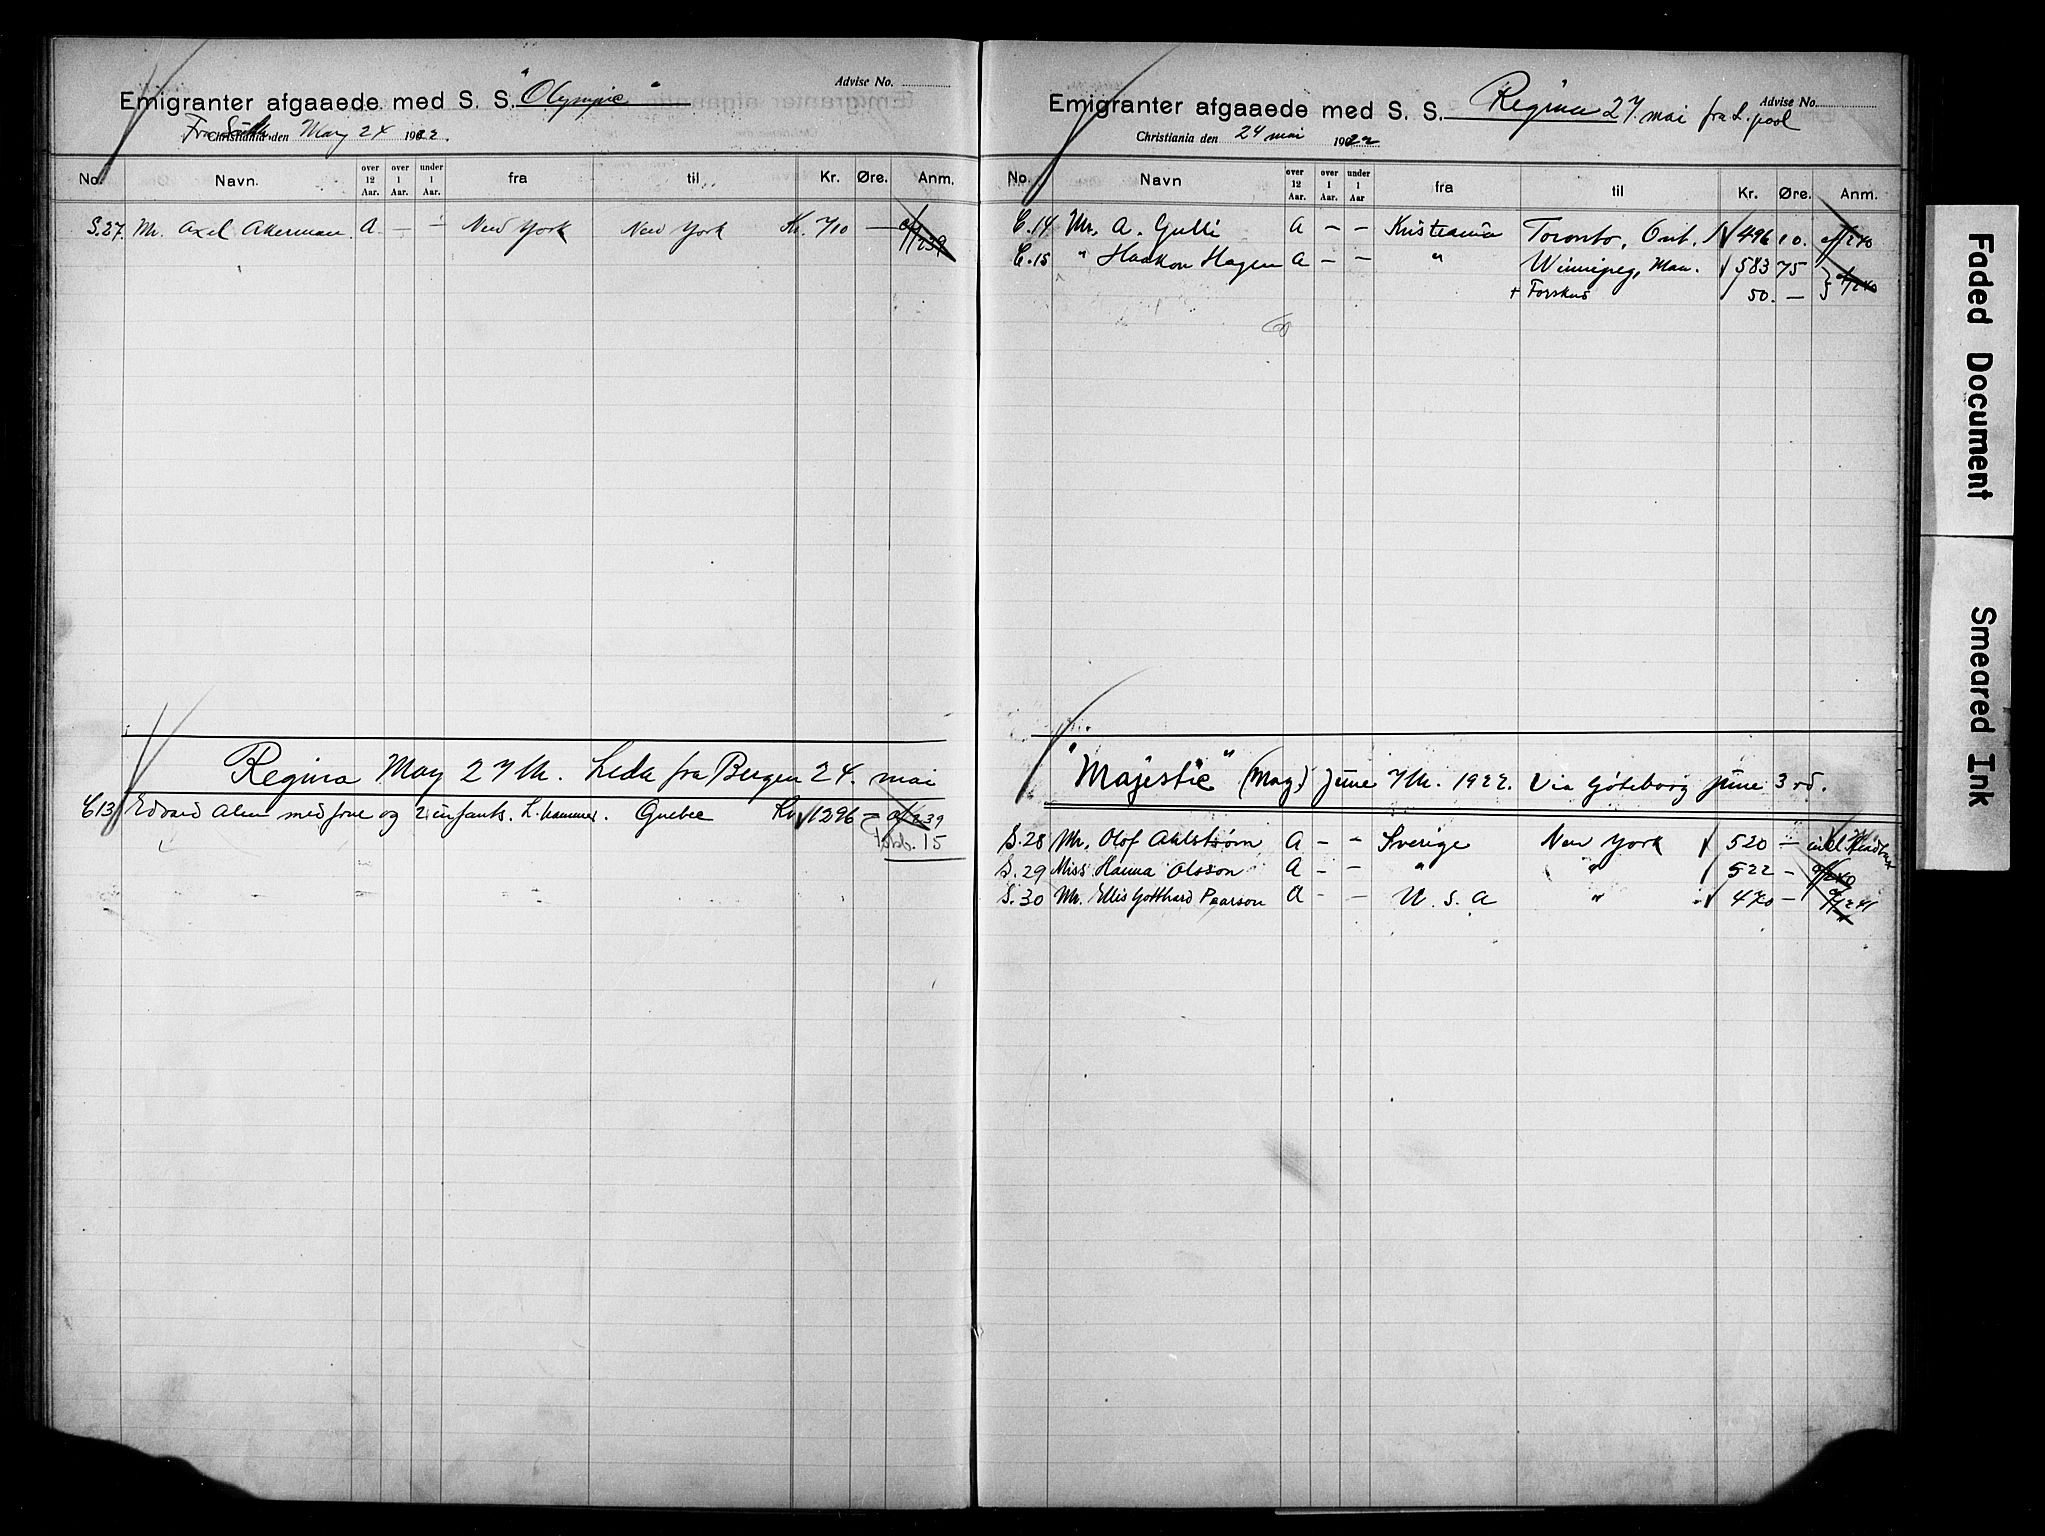 Advise No.
Emigranter afgaaede med S. S. "Olympic"
Fra Christiania den May 24 1922.
No. Navn. over 12 Aar. over 1 Aar. under 1 Aar. fra til Kr. Øre. Anm.
S.27. Mr. Axel Akerman. A. — — New York New York Kr. 710 — 239
Regina May 27th. Leda fra Bergen 24. mai
C13 Edvard Alm med frue og 2 infants. L.hammer. Quebec Kr 1296 — 239
15
Advise No.
Emigranter afgaaede med S. S. Regina 27. mai fra L.pool
Christiania den 24 mai 1922
No. Navn over 12 Aar. over 1 Aar. under 1 Aar fra til Kr. Øre. Anm.
C.14 Mr. A. Gulli A — — Kristiania Toronto, Ont. 496 10. 240
C.15 " Haakon Hagen A — — " Winnipeg, Man. 583 75
+ Forskud 50. — } 240
"Majestic" (Mag.) June 7th. 1922. Via Göteborg June 3rd.
S.28 Mr. Olof Ahlstrøm A — — Sverige New York 520 — inkl.
S.29 Miss. Hanna Olsson A — — " " 522 — 240
S.30 Mr. Ellis Gotthard Pearson A — — U.S.A " 470 — 241
Faded Document
Smeared Ink